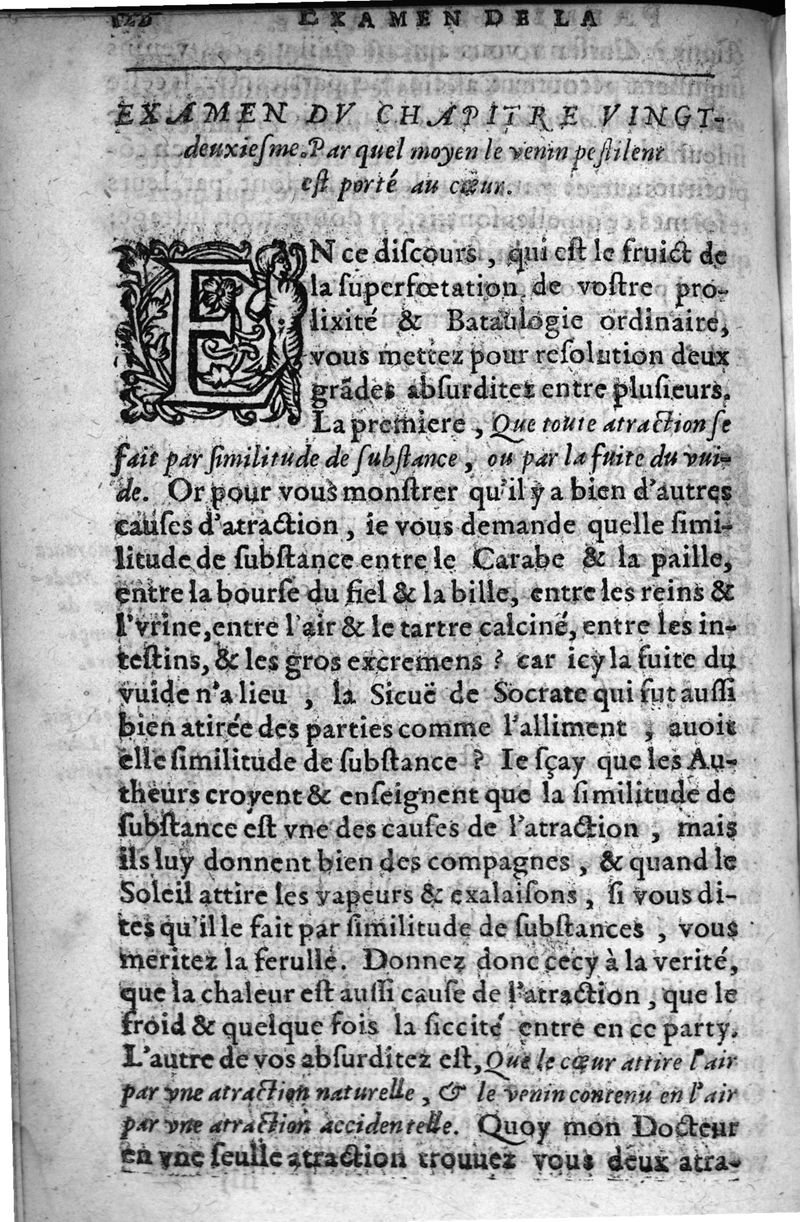 EXAMEN DE LA
EXAMEN DV CHAPITRE VINGT-
deuxiesme. Par quel moyen le venin pestilent
est porté au cœur.
EN ce discours, qui est le fruict de
la superfœtation de vostre pro-
lixité & Bataulogie ordinaire,
vous mettez pour resolution deux
grādes absurditez entre plusieurs.
La premiere, Que toute atraction se
fait par similitude de substance, ou par la fuite du vui-
de. Or pour vous monstrer qu'il y a bien d'autres
causes d'atraction, ie vous demande quelle simi-
litude de substance entre le Carabe & la paille,
entre la bourse du fiel & la bille, entre les reins &
l'vrine, entre l'air & le tartre calciné, entre les in-
testins, & les gros excremens ? car icy la fuite du
vuide n'a lieu, la Sicuë de Socrate qui fut aussi
bien atirée des parties comme l'alliment, auoit
elle similitude de substance ? Ie sçay que les Au-
theurs croyent & enseignent que la similitude de
substance est vne des causes de l'atraction, mais
ils luy donnent bien des compagnes, & quand le
Soleil attire les vapeurs & exalaisons, si vous di-
tes qu'il le fait par similitude de substances, vous
meritez la ferulle. Donnez donc cecy à la verité,
que la chaleur est aussi cause de l'atraction, que le
froid & quelque fois la siccité entre en ce party.
L'autre de vos absurditez est, Que le cœur attire l'air
par vne atraction naturelle, & le venin contenu en l'air
par vne atraction accidentelle. Quoy mon Docteur
en vne seulle atraction trouuez vous deux atra-